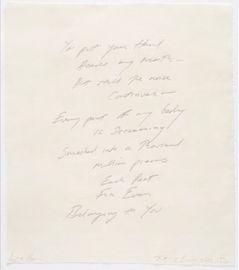 You put your Hand
Across my mouth –
But still the noise
Continues –
Every part of my body
is Screaming
Smashed into a Thousand
million pieces
Each Part
For Ever
Belonging to You